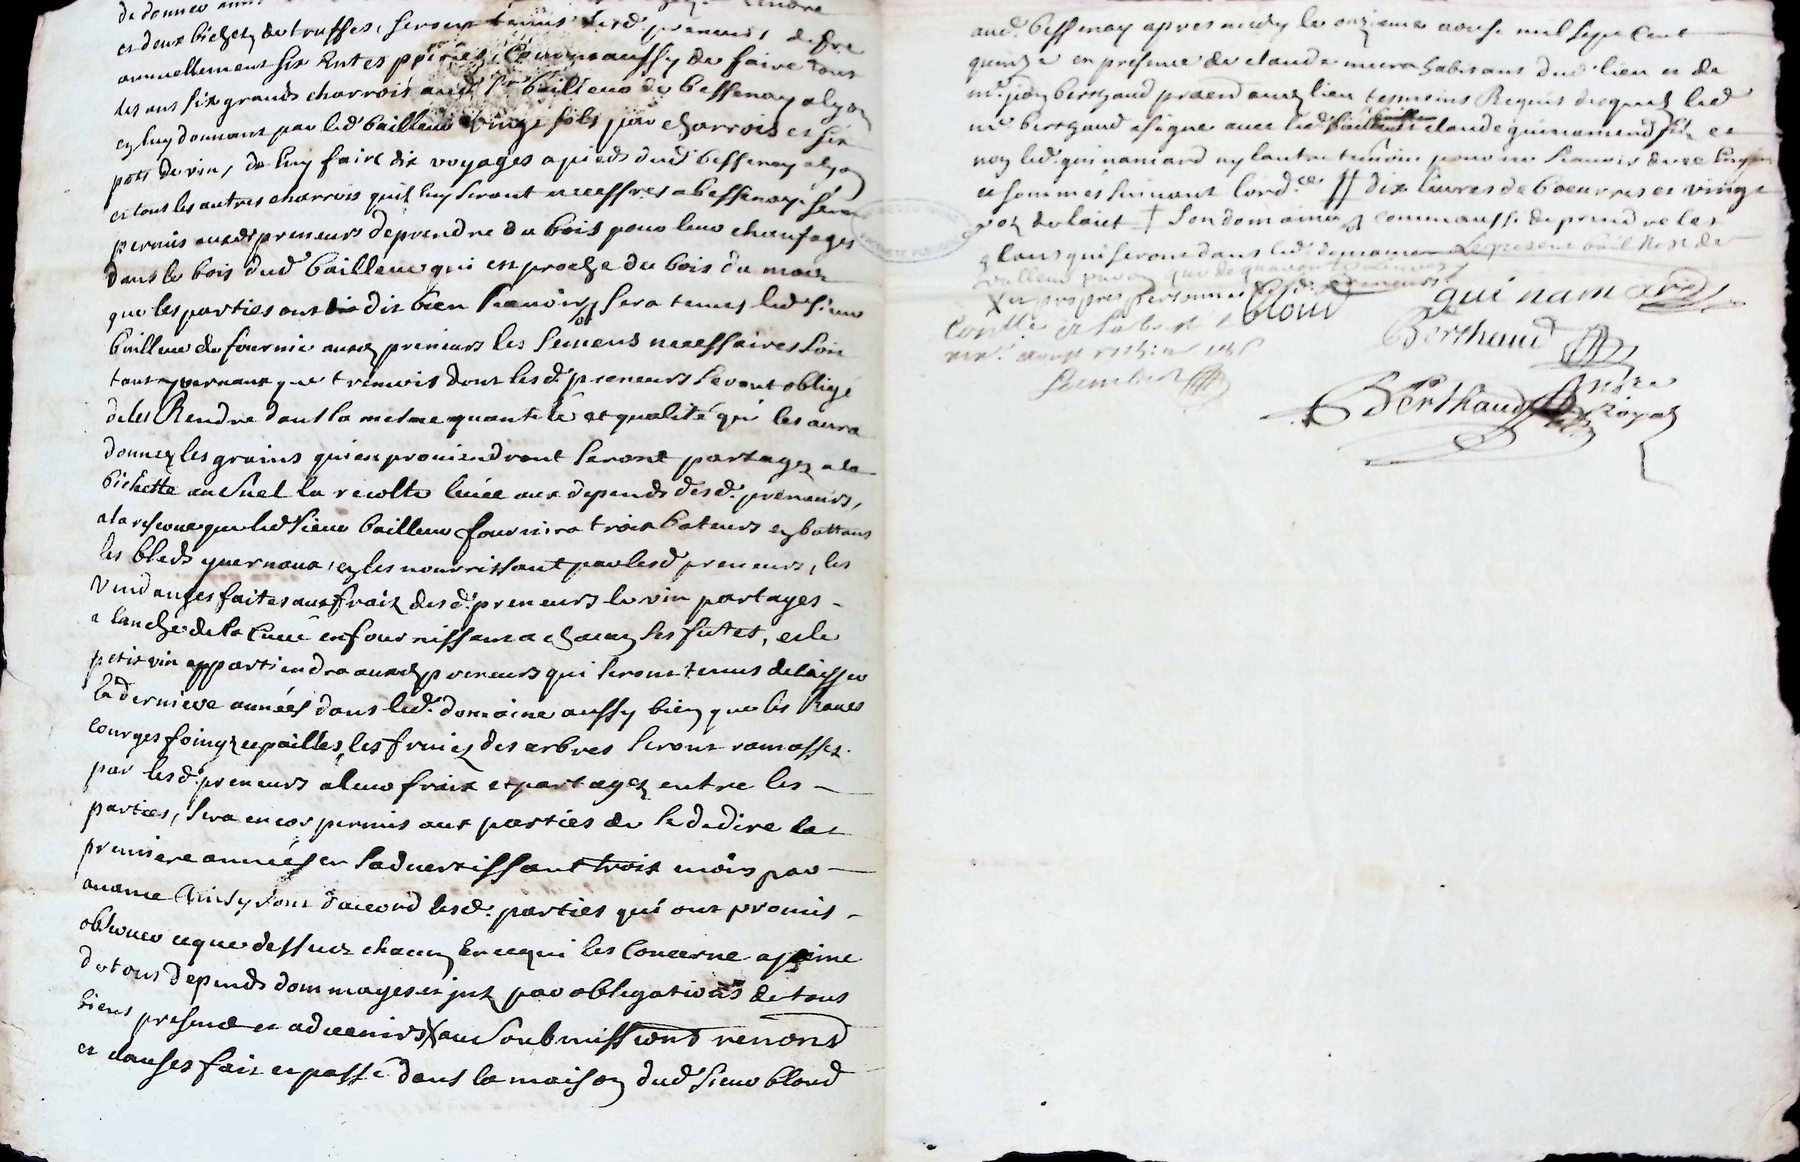 de donner
et deux bichets de truffes, seront tenus lesd. preneurs de fre
annuellement six entes poiriers, comme aussy de faire tous
les ans six grands charrois aud. Sr bailleur de Bessenay a Lyon
en luy donnant par led bailleur vingt sols par charrois et six
pots de vin, de luy faire dix voyages a pieds dud Bessenay a Lyon
et tous les autres charrois quil luy seront necessres a Bessenay, sera
permis ausd preneurs de prendre du bois pour leur chaufages
dans le bois dud bailleur qui est proche du bois du
que les parties ont dit bien scavoir, sera tenus led sieur
bailleur de fournir ausd preneurs les semens necessaires soit
tant yvernaux que tremois dont lesd. preneurs seront obligé
de les Rendre dans la mesme quantité et qualité qui les aura
donnez les grains qui en proviendront seront partagez a la
bichette au suel la recolte levée aux depends desd. preneurs,
a la reserve que led sieur bailleur fournira trois bateurs en battant
les bleds yvernaux, en les nourrissant par lesd preneurs, les
vendanges faites aux fraix desd. preneurs le vin partages
a lanche de la cuve en fournissant a chacun les futes, et le
petit vin appartiendra ausd preneurs qui seront tenus de laisser
la derniere années dans led. domaine aussy bien que les Raves
courges foings et pailles, les fruicts des arbres seront ramassez
par lesd. preneurs a leur fraix et partagez entre les
parties, sera encor permis aux parties de se dedire la
premiere années en sadvertissant trois mois par
avance Ainsy sont daccord lesd. parties qui ont promis
observer ce que dessus chacun en ce qui les concerne a peine
de tous depends dommages et jnts par obligations de tous
biens presend et advenirs X aux soubmissions renons
et clauses fait et passé dans la maison dud sieur blond
aud. Bessenay apres midy le onzieme aoust mil sept cent
quinze en presence de claude habitant dud lieu et de
mr jean Berthaud praend aud lieu tesmoins Requis desquels led
mr berthaud a signé avec led bailleur et claude quinamend fils et
non led. quinamard ny lautre temoin pour ne scavoir de ce enquis
et sommés suivant lordce // dix livres de beurres et vingt
pot de laict + son domaine comme aussi de prendre les
glans qui seront dans led. domaine Le present bail
X et propres personnes desd. preneurs
blond
quinamard
Conllé et
Berthaud
Berthaud
Nore
Royal